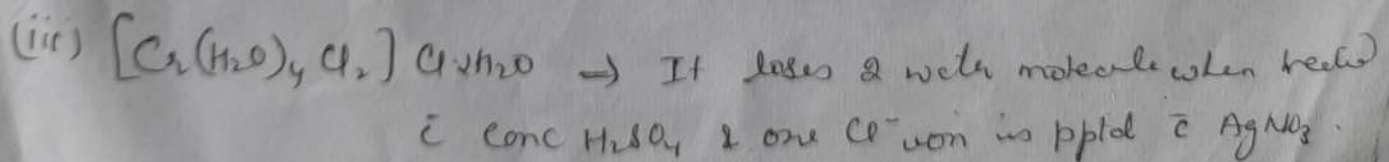 (iii) [Cr(H₂O)₄ Cl₂] Cl·2H₂O → It loses 2 water molecule when treated
c̄ conc H₂SO₄ & one Cl⁻ ion is pptd c̄ AgNO₃.